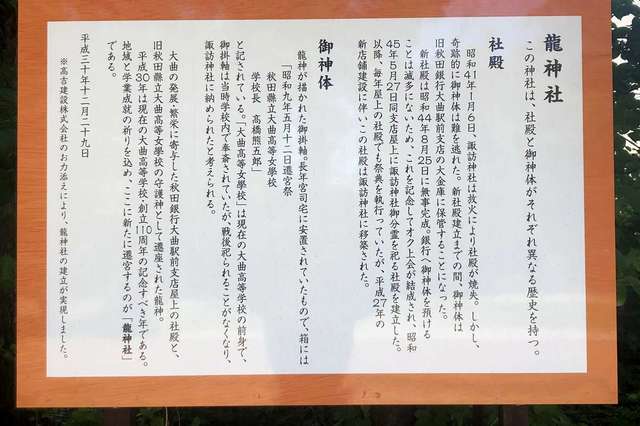 龍神社
この神社は、社殿と御神体がそれぞれ異なる歴史を持つ。
社殿
昭和41年1月6日、諏訪神社は放火により社殿が焼失。しかし、
奇跡的に御神体は難を逃れた。新社殿建立までの間、御神体は
旧秋田銀行大曲駅前支店の大金庫に保管することになった。
新社殿は昭和44年8月25日に無事完成。銀行へ御神体を預ける
ことは滅多にないため、これを記念してオク上会が結成され、昭和
45年5月27日同支店屋上に諏訪神社御分霊を祀る社殿を建立した。
以降、毎年屋上の社殿でも祭典を執行っていたが、平成27年の
新店舗建設に伴い、この社殿は諏訪神社に移築された。
御神体
龍神が描かれた御掛軸。長年宮司宅に安置されていたもので、箱には
「昭和九年五月十二日遷宮祭
秋田縣立大曲高等女學校
学校長 高橋熊五郎」
と記されている。「大曲高等女學校」は現在の大曲高等学校の前身で、
御掛軸は当時学校内で奉斎されていたが、戦後祀られることがなくなり、
諏訪神社に納められたと考えられる。
大曲の発展・繁栄に寄与した秋田銀行大曲駅前支店屋上の社殿と、
旧秋田縣立大曲高等女學校の守護神として遷座された龍神。
平成30年は現在の大曲高等学校・創立110周年の記念すべき年である。
地域と学業成就の祈りを込め、ここに新たに遷宮するのが「龍神社」
である。
平成三十年十二月二十九日
※高吉建設株式会社のお力添えにより、龍神社の建立が実現しました。